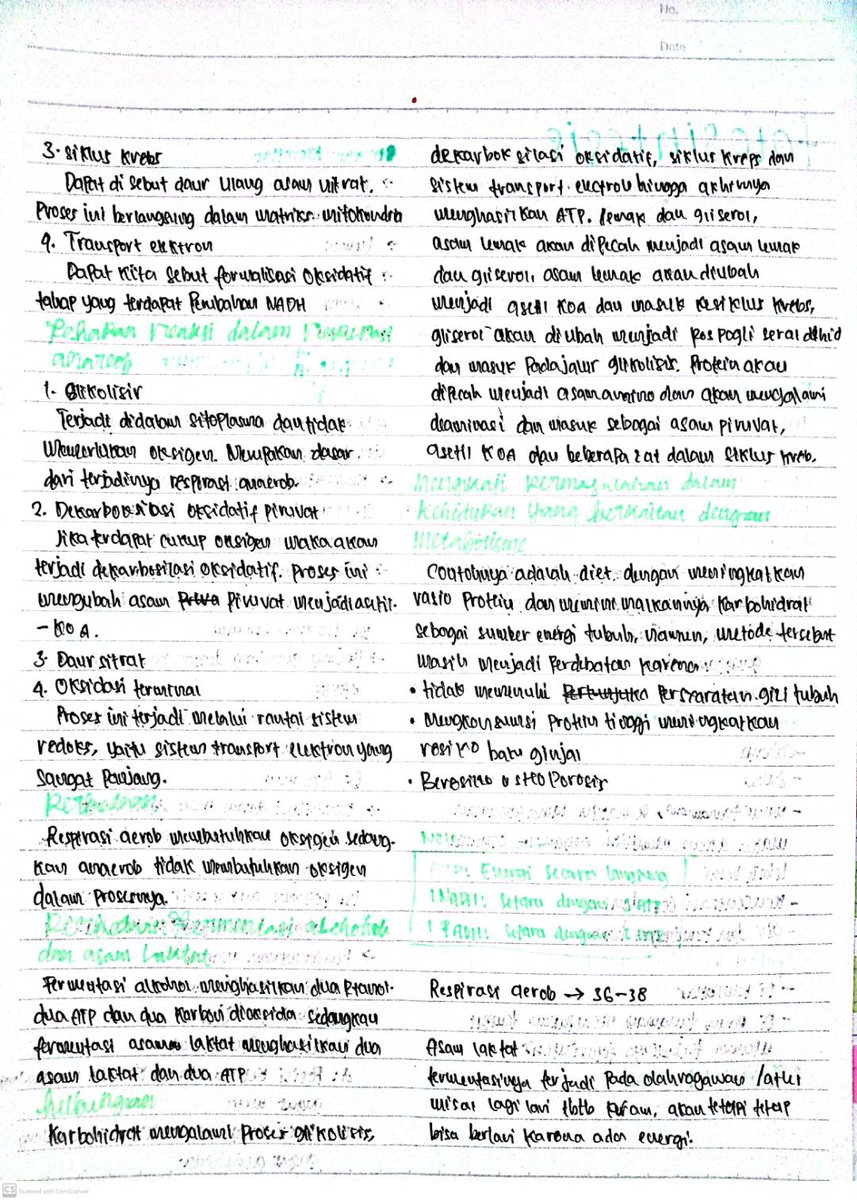 No.
Date
3. Siklus Krebs
Dapat di sebut daur ulang asam nitrat.
Proses ini berlangsung dalam matriks mitokondria
4. Transport elektron
Dapat kita sebut formalisasi oksidatif
tahap yang terdapat Perubahan NADH
reaksi dalam
anareob
1. Glikolisir
Terjadi didalam sitoplasma dan tidak
Memerlukan oksigen. Merupakan dasar
dari terjadinya respirasi anaerob.
2. Dekarboksilasi oksidatif piruvat
Jika terdapat cukup oksigen maka akan
terjadi dekarbosilasi oksidatif. Proses ini
mengubah asam piruvat menjadi asitil
- KOA.
3. Daur sitrat
4. Oksidasi terminal
Proses ini terjadi melalui rantai sistem
redoks, yaitu sistem transport elektron yang
Sangat Panjang.
Perbedaan
Respirasi aerob membutuhkan oksigen sedang-
kan anaerob tidak membutuhkan oksigen
dalam Prosesnya.
Perbedaan Fermentasi alcohol
dan asam laktat
Fermentasi alkohol menghasilkan dua etanol.
dua ATP dan dua karbon dioksida sedangkan
fermentasi asam laktat menghasilkan dua
asam laktat dan dua ATP
hubungan
Karbohidrat mengalami Proses glikolisis,
dekarboksilasi oksidatif, siklus kreps dan
sistem transport electron hingga akhirnya
menghasilkan ATP. Lemak dan gliserol,
asam lemak akan dipecah menjadi asam lemak
dan gliserol, asam lemak akan diubah
menjadi asetil KOA dan masuk kesiklus krebs,
gliserol akan diubah menjadi
dan masuk Pada jalur glikolisis. Protein akan
dipecah menjadi asam amino dan akan mengalami
deaminasi dan masuk sebagai asam piruvat,
asetil KOA dan beberapa zat dalam siklus kreb.
dalam
kehidupan yang berkaitan dengan
metabolisme
Contohnya adalah diet. dengan meningkatkan
rasio Protein dan meminimalkannya karbohidrat
sebagai sumber energi tubuh, namun, metode tersebut
masih menjadi Perdebatan karena
• tidak memenuhi Persyaratan gizi tubuh
• Mengkonsumsi Protein tinggi meningkatkan
resiko batu ginjal
• Beresiko osteoporosis
Energi secara langsung
1 NADH: setara dengan 3 ATP
1 FADH: setara dengan 2 ATP
Respirasi aerob → 36-38
Asam laktat
fermentasinya terjadi Pada olahragawan / atlet
misal lagi lari akan tetapi tetap
bisa berlari karena ada energi.
CS Scanned with CamScanner